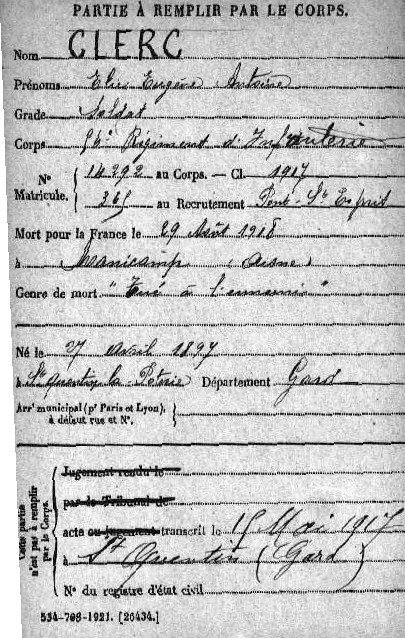 PARTIE À REMPLIR PAR LE CORPS.
Nom CLERC
Prénoms Elie Eugène Antoine
Grade Soldat
Corps Régiment d'Infanterie
N° Matricule. 14292 au Corps. — Cl. 1917
365 au Recrutement Pont-St Esprit
Mort pour la France le 29 Août 1918
à Manicamp (Aisne)
Genre de mort "Tué à l'ennemi"
Né le 27 avril 1897
à St Quentin la Poterie Département Gard
Arrt municipal (pr Paris et Lyon), à défaut rue et N°.
Cette partie n'est pas à remplir par le Corps.
Jugement rendu le
par le Tribunal de
acte ou jugement transcrit le 15 Mai 1917
à St Quentin (Gard)
N° du registre d'état civil
534-708-1921. [26434.]